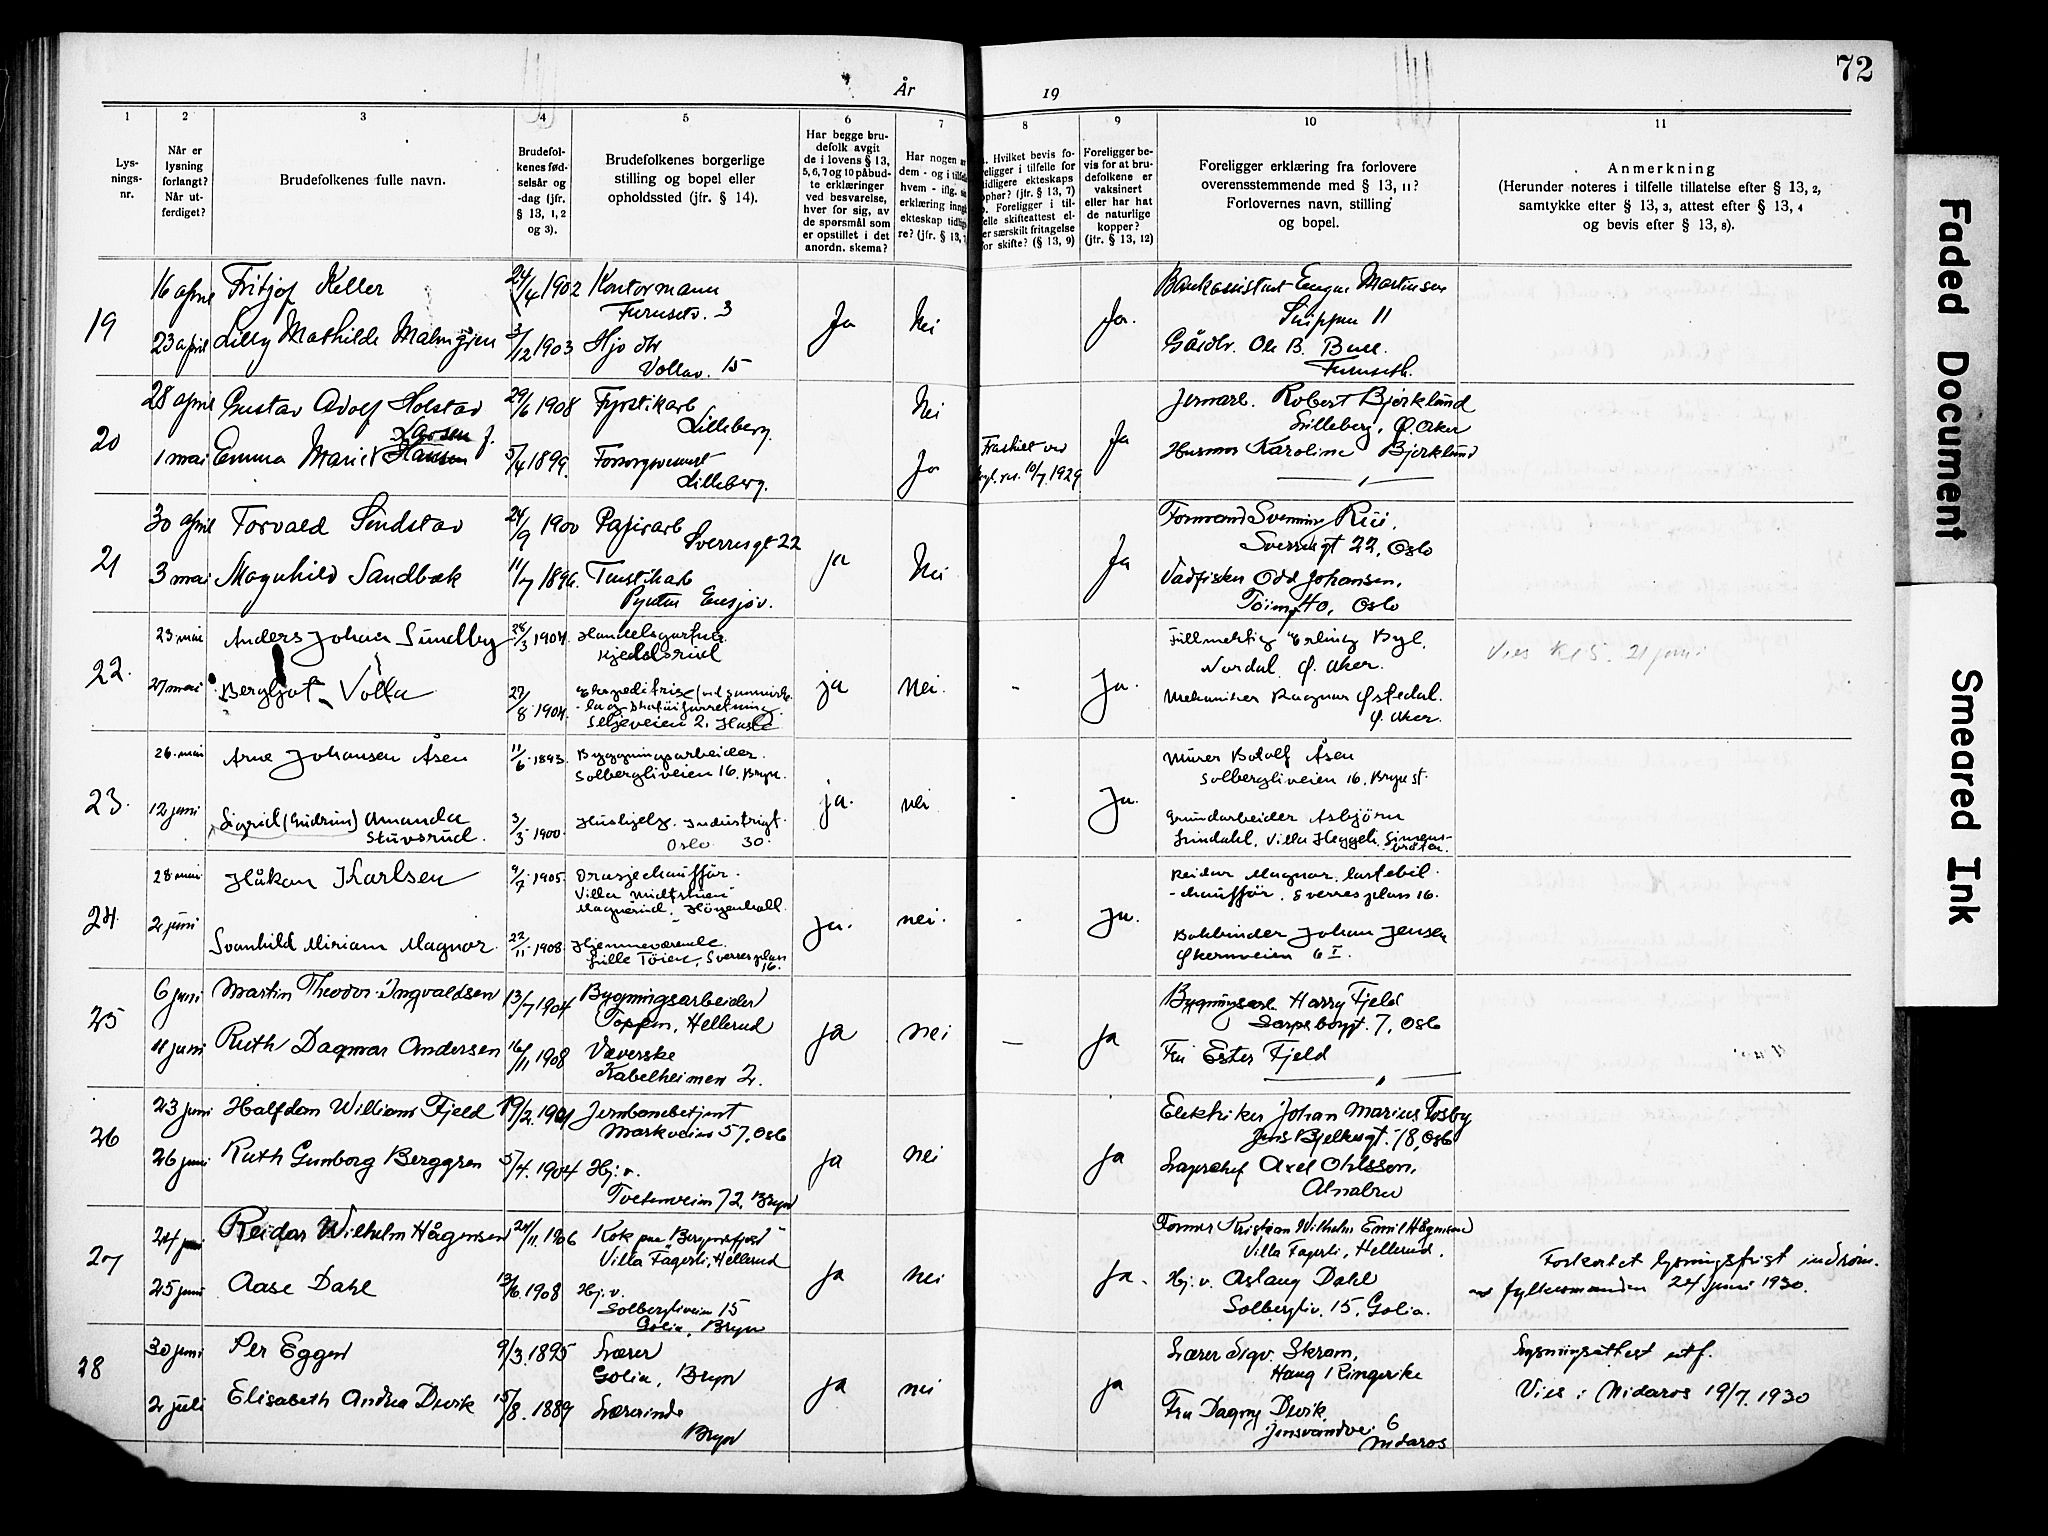 72
År 19
1 2 3 4 5 6 7 8 9 10 11
Lys-
nings-
nr.
Når er
lysning
forlangt?
Når ut-
ferdiget?
Brudefolkenes fulle navn.
Brudefol-
kenes fød-
selsår og
-dag (jfr.
§ 13, 1, 2
og 3).
Brudefolkenes borgerlige
stilling og bopel eller
opholdssted (jfr. § 14).
Har begge bru-
defolk avgit
de i lovens § 13,
5, 6, 7 og 10 påbud-
te erklæringer
ved besvarelse,
hver for sig, av
de spørsmål som
er opstillet i det
anordn. skema?
Har nogen av
dem - og i tilfelle
hvem - iflg. sin
erklæring inngått
ekteskap tidlige-
re? (jfr. § 13, 7
. Hvilket bevis fo-
religger i tilfelle for
tidligere ekteskaps
opher? (jfr. § 13, 7)
. Foreligger i til-
felle skifteattest el-
er særskilt fritagelse
for skifte? (§ 13, 9)
Foreligger be-
vis for at bru-
defolkene er
vaksinert
eller har hat
de naturlige
kopper?
(jfr. § 13, 12)
Foreligger erklæring fra forlovere
overensstemmende med § 13, 11?
Forlovernes navn, stilling
og bopel.
Anmerkning
(Herunder noteres i tilfelle tillatelse efter § 13, 2,
samtykke efter § 13, 3, attest efter § 13, 4
og bevis efter § 13, 8).
19
16 april Fritjof Keller 24/4 1902 Kontormann
Furusetv. 3
Ja Nei Ja.
Bankassistent Martinsen
11
23 april Lilly Mathilde Malmgren 3/12 1903 Hjv dtr
Vollav. 15
Gårdbr. Ole B. Bull.
Furuseth.
20
28 april Gustav Adolf Holstad 29/6 1908 Fyrstikarb
Lilleberg.
Nei
Jernarb. Robert Bjerklund
Lilleberg, Ø. Aker
Larsen f.
1 mai Emma Marie Hansen 5/4 1899. Lilleberg.
Ja Fraskilt ved
10/7. 1929
Ja
Husmor Karoline Bjerklund
— " —
21
30 april Torvald Sindstad 24/9 1900 Papirarb
Sverresgt 22
ja Nei Ja
Formand Svenning Rui.
Sverresgt 22, Oslo
3 mai Magnhild Sandbæk 11/7 1896. Ensjøv.
Odd Johansen,
Tøieng. 40, Oslo
22.
23 mai Anders Johan Sundby 28/3 1904. Handelsgartner.
Kjedelsrud
ja nei. - Ja.
Fullmektig Erling Bye.
Nordal Ø. Aker.
Vies kl 5. 21 juni
27 mai Bergljot Volla 27/8 1904.
Seljeveien 2. Hasle
Mekaniker Ragnar Østedal.
Ø. Aker.
23.
26. mai Arne Johansen Åsen 11/6 1893. Bygningsarbeider.
Solbergliveien 16. Bryn.
ja. nei - Ja.
Murer Botolf Åsen
Solbergliveien 16. Bryn st.
12 juni Sigrid (Gudrun) Amanda
Stuvsrud.
3/3 1900. Hushjelp. Industrigt.
Oslo 30.
Grundarbeider Asbjørn
Lindahl, Villa Heggeli.
24.
28 mai Håkon Karlsen 9/7 1905. Drosjechauffør.
Villa Midtstuen
Magnerud. Høyenhall.
Ja. nei. - Ja.
Reidar Magnor. lastebil-
chauffør. Sverresplass 16.
2 juni Svanhild Miriam Magnor. 22/11 1908. Hjemmeværende.
Lille Tøien, Sverresplass
16.
Bokbinder Johan Jensen
Økernveien 6 I.
25
6 juni Martin Theodor Ingvaldsen 13/7 1904 Bygningsarbeider
Toppen, Hellerud
Ja nei — ja
Bygningsarb. Harry Fjeld
Sarpsborggt. 7, Oslo
11 juni Ruth Dagmar Andersen 16/11 1908 Væverske
Kabelheimen 2.
Fru Ester Fjeld
— " —
26
23 juni Halfdan William Fjeld 19/2. 1901 Jernbanebetjent
Markveien 57, Oslo
ja nei ja
Elektriker Johan Marius Tosby
Jens Bjelkesgt. 18, Oslo
26 juni Ruth Gunborg Berggren 5/4. 1904 Hj. v.
Tvetenveien 72, Bryn
Lagerchef Axel Ohlsson,
Alnabru
27
24 juni Reidar Wilhelm Hågensen 24/11. 1906 Kok paa "Bergensfjord"
Villa Fagerli, Hellerud
ja nei ja.
Former Kristian Wilhelm Emil Hågensen
Villa Fagerli, Hellerud.
Forkortet lysningsfrist indrøm.
av fylkesmanden 24 juni 1930.
25 juni Aase Dahl 13/6. 1908 Hj. v.
Solbergliveien 15
Golia, Bryn
Hj. v. Aslaug Dahl
Solbergliv. 15, Golia.
28
30 juni Per Eggen 9/3. 1895 Lærer
Golia, Bryn
ja nei ja
Lærer Sigv. Skrom,
Haug, Ringerike
Lysningsattest utf.
2 juli Elisabeth Andrea Devik 15/8. 1889 Lærerinde
Bryn
Fru Dagny Devik,
6
Nidaros
Vies i Nidaros 19/7. 1930
Faded Document
Smeared Ink